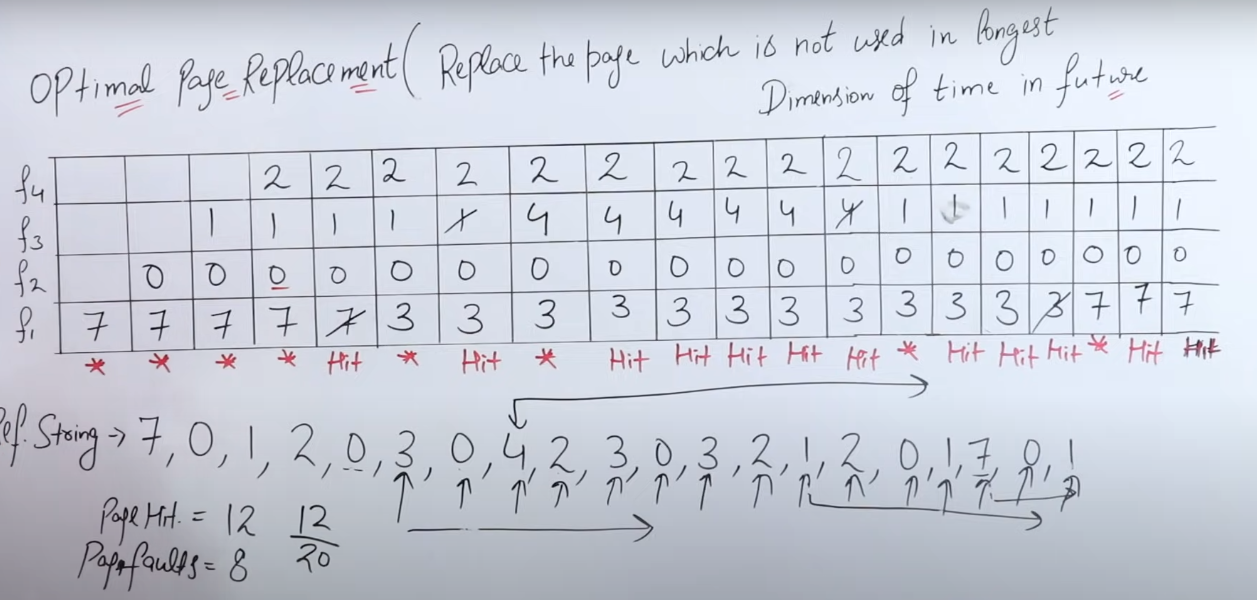 OPtimal Page Replacement ( Replace the page which is not used in longest
Dimension of time in future
f4 2 2 2 2 2 2 2 2 2 2 2 2 2 2 2 2 2
f3 1 1 1 1 1 4 4 4 4 4 4 1 1 1 1 1 1 1
f2 0 0 0 0 0 0 0 0 0 0 0 0 0 0 0 0 0 0 0
f1 7 7 7 7 7 3 3 3 3 3 3 3 3 3 3 3 3 7 7 7
* * * * Hit * Hit * Hit Hit Hit Hit Hit * Hit Hit Hit * Hit Hit
ef. String → 7, 0, 1, 2, 0, 3, 0, 4, 2, 3, 0, 3, 2, 1, 2, 0, 1, 7, 0, 1
Page Hit. = 12 12
Page faults = 8 20